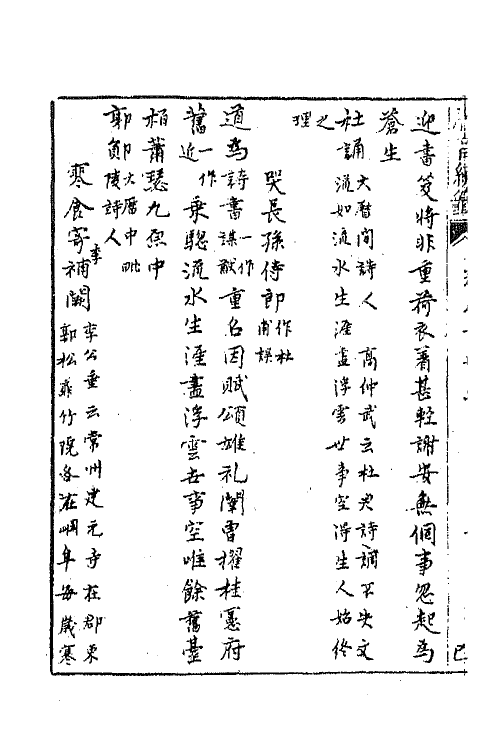 迎書笈將非重荷衣著甚輕謝安無個事忽起為
蒼生
杜誦 大曆間詩人 高仲武云杜君詩調不失文
流如流水生涯盡浮雲世事空得生人始終
之
理
哭長孫侍郎 作杜
甫誤
道為詩書 一作 重名因賦頌雄礼闈曾擢桂憲府
謀猷
舊 一作 乗驄流水生涯盡浮雲世事空唯餘舊臺
近
柏蕭瑟九原中
郭鄖 大曆中毗
陵詩人
寒食寄李補闕 李公垂云常州建元寺在郡東
郭松森竹院各在岡阜每歲寒